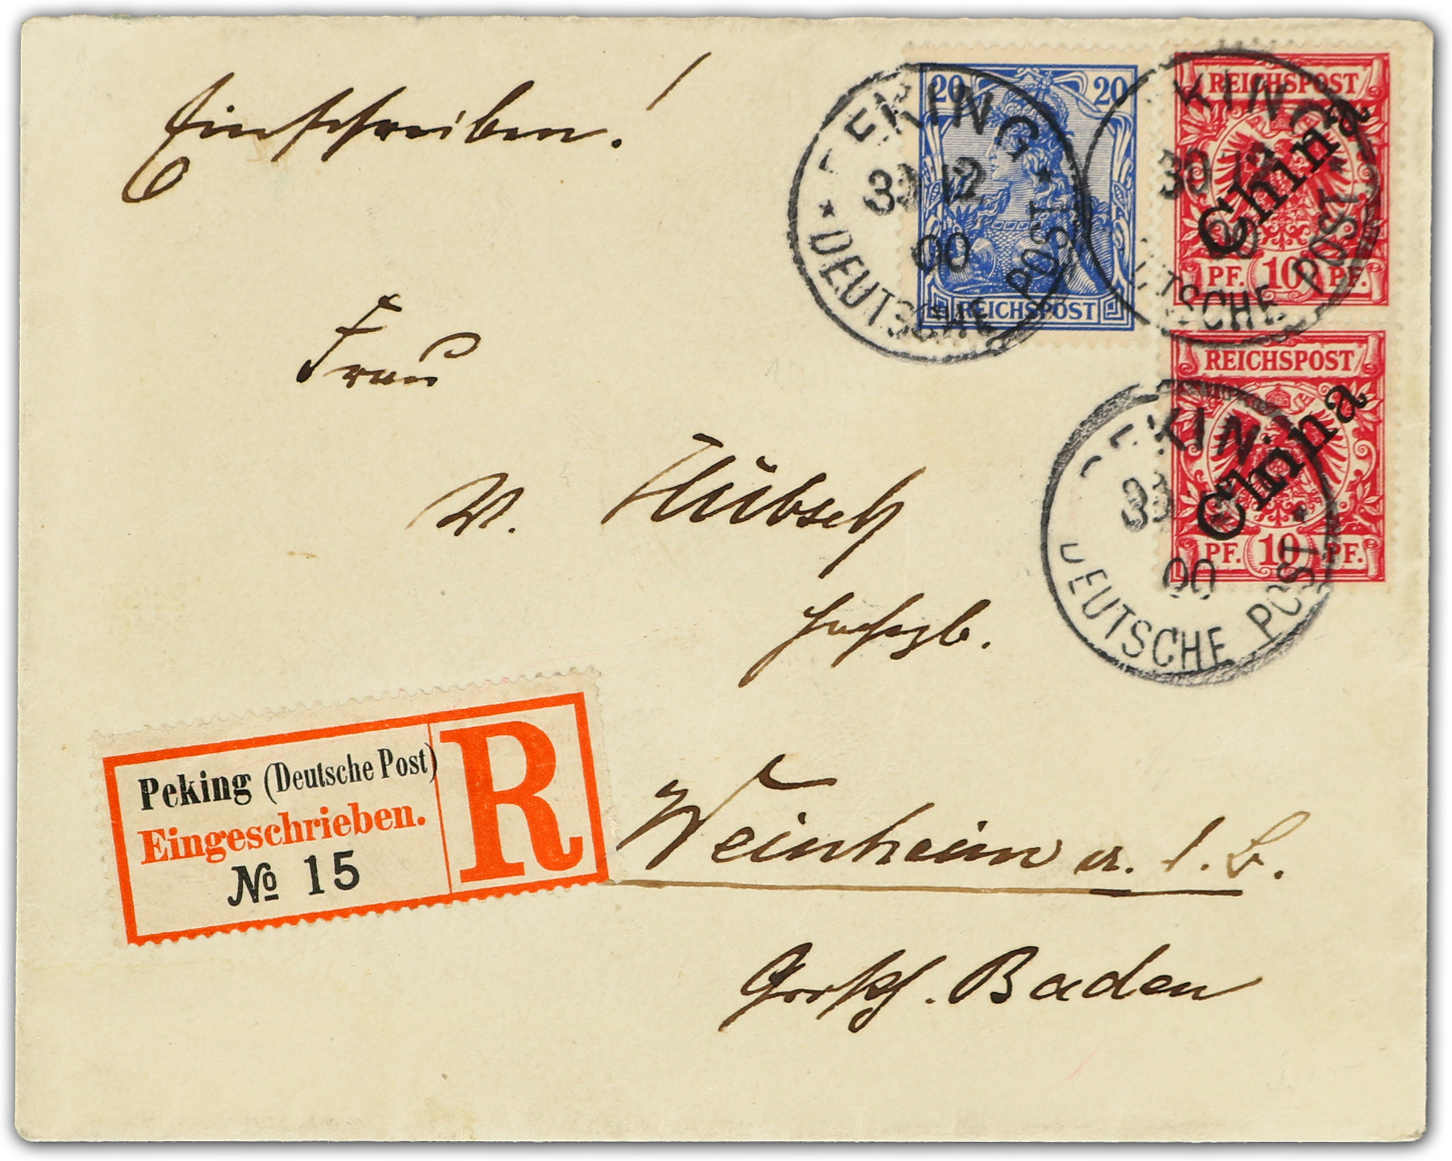 Einschreiben!
20 20
REICHSPOST
REICHSPOST
China
PF. 10 PF.
REICHSPOST
China
PF. 10 PF.
PEKING
30 12
00
DEUTSCHE POST
KING
30 12
00
DEUTSCHE POST
PEKING
00
DEUTSCHE POST
Frau
W. Hübsch
Weinheim a. d. B.
Großh. Baden
Peking (Deutsche Post)
Eingeschrieben.
№ 15
R